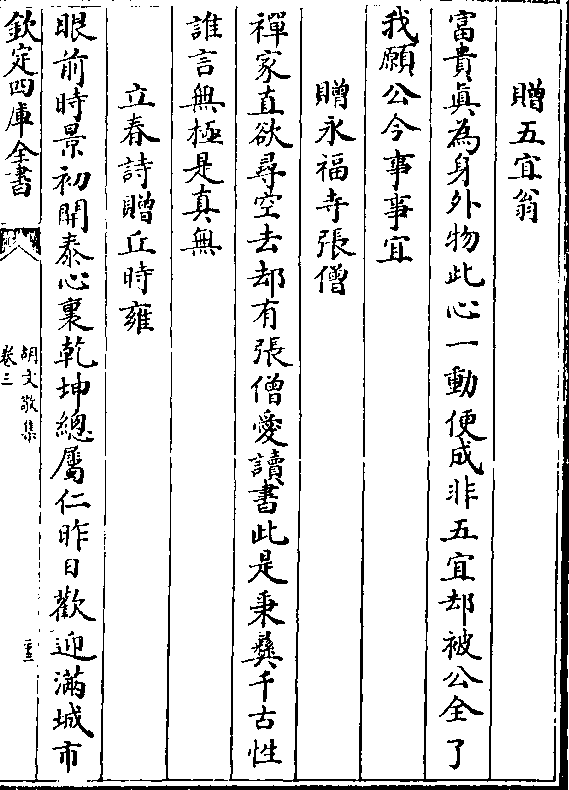 贈五宜翁
富貴眞為身外物此心一動便成非五宜却被公全了
我願公今事事宜
贈永福寺張僧
禪家直欲尋空去却有張僧愛讀書此是秉彝千古性
誰言無極是真無
立春詩贈丘時雍
眼前時景初開泰心裏乾坤總屬仁昨日歡迎滿城市
欽定四庫全書
胡文敬集
卷三